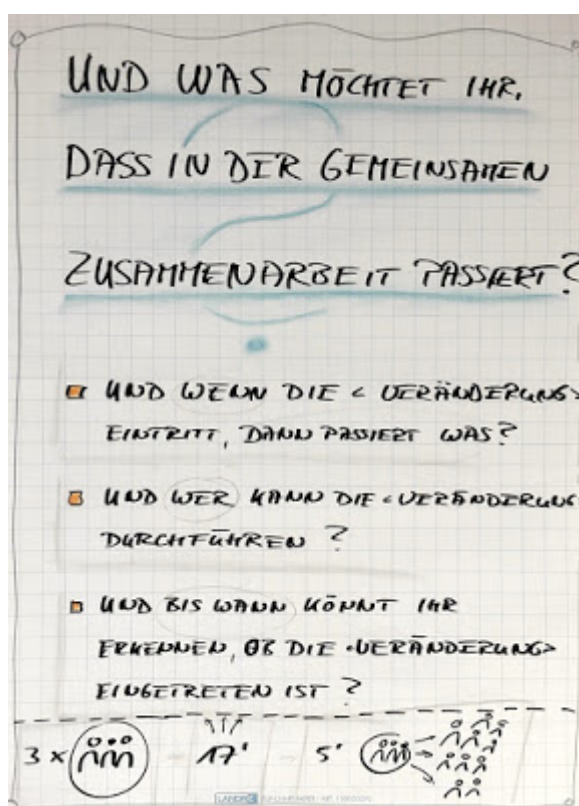 UND WAS MÖCHTET IHR,
DASS IN DER GEMEINSAMEN
ZUSAMMENARBEIT PASSIERT?
UND WENN DIE <VERÄNDERUNG>
EINTRITT, DANN PASSIERT WAS?
UND WER KANN DIE <VERÄNDERUNG
DURCHFÜHREN?
UND BIS WANN KÖNNT IHR
ERKENNEN, OB DIE <VERÄNDERUNG>
EINGETRETEN IST?
3 x 17' 5'